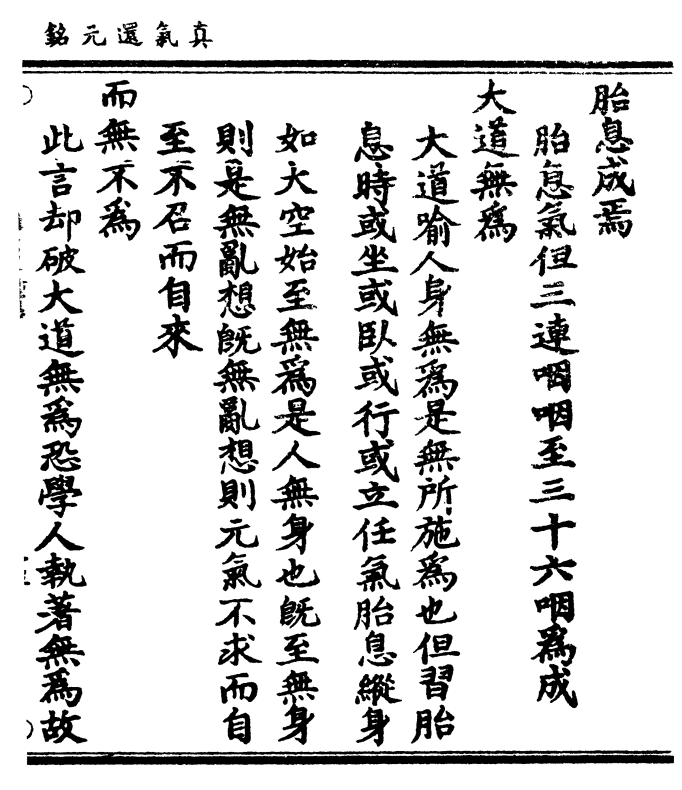 真氣還元銘
胎息成焉
胎息氣但三連咽咽至三十六咽為成
大道無為
大道喻人身無為是無所施為也但習胎
息時或坐或臥或行或立任氣胎息縱身
如大空始至無為是人無身也既至無身
則是無亂想既無亂想則元氣不求而自
至不召而自來
而無不為
此言却破大道無為恐學人執著無為故